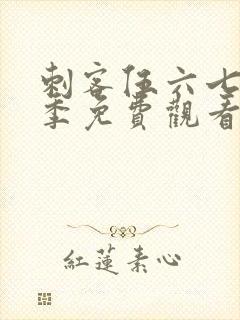 刺客伍六七
季免費觀看
紅蓮素心